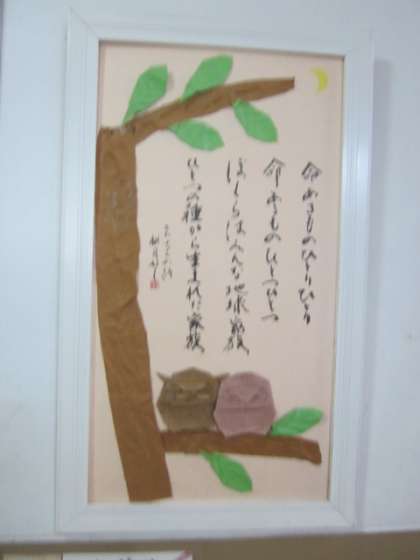 命あるものひとりひとり
命あるものひとつひとつ
ぼくらはみんな地球家族
ひとつの種から生まれた家族